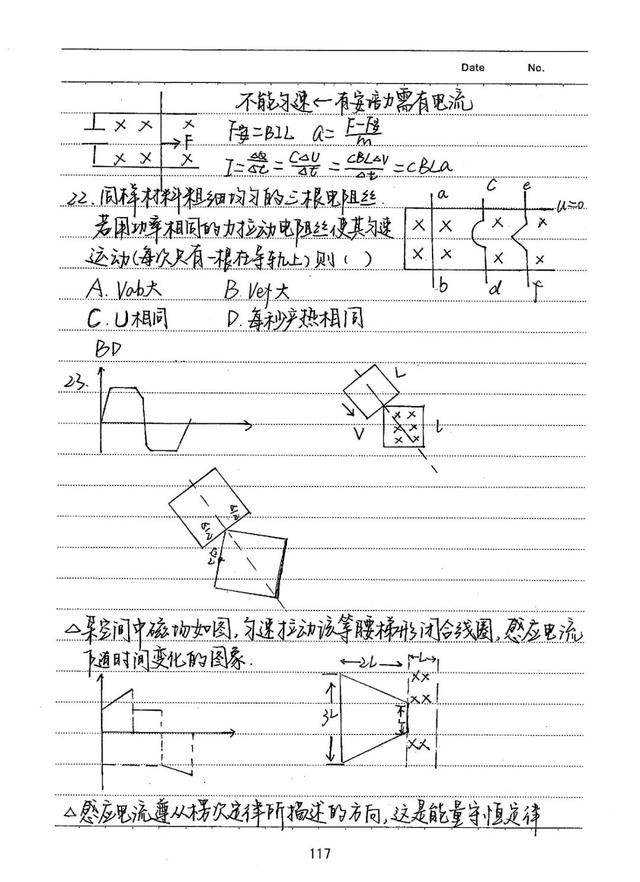 Date No.
不能匀速←有安培力需有电流
F安=BIL a=(F-F安)/m
F
I=Δq/Δt=CΔU/Δt=CBLΔV/Δt=CBLa
22.同样材料粗细均匀的三根电阻丝
若用功率相同的力拉动电阻丝使其匀速
运动(每次只有一根在导轨上)则( )
a c e
u=0
b d f
A. Vab大 B. Vef大
C. U相同 D. 每秒产热相同
BD
23.
L
V
L
△某空间中磁场如图,匀速拉动该等腰梯形闭合线圈,感应电流
下随时间变化的图象.
2L L
3L
△感应电流遵从楞次定律所描述的方向,这是能量守恒定律
117